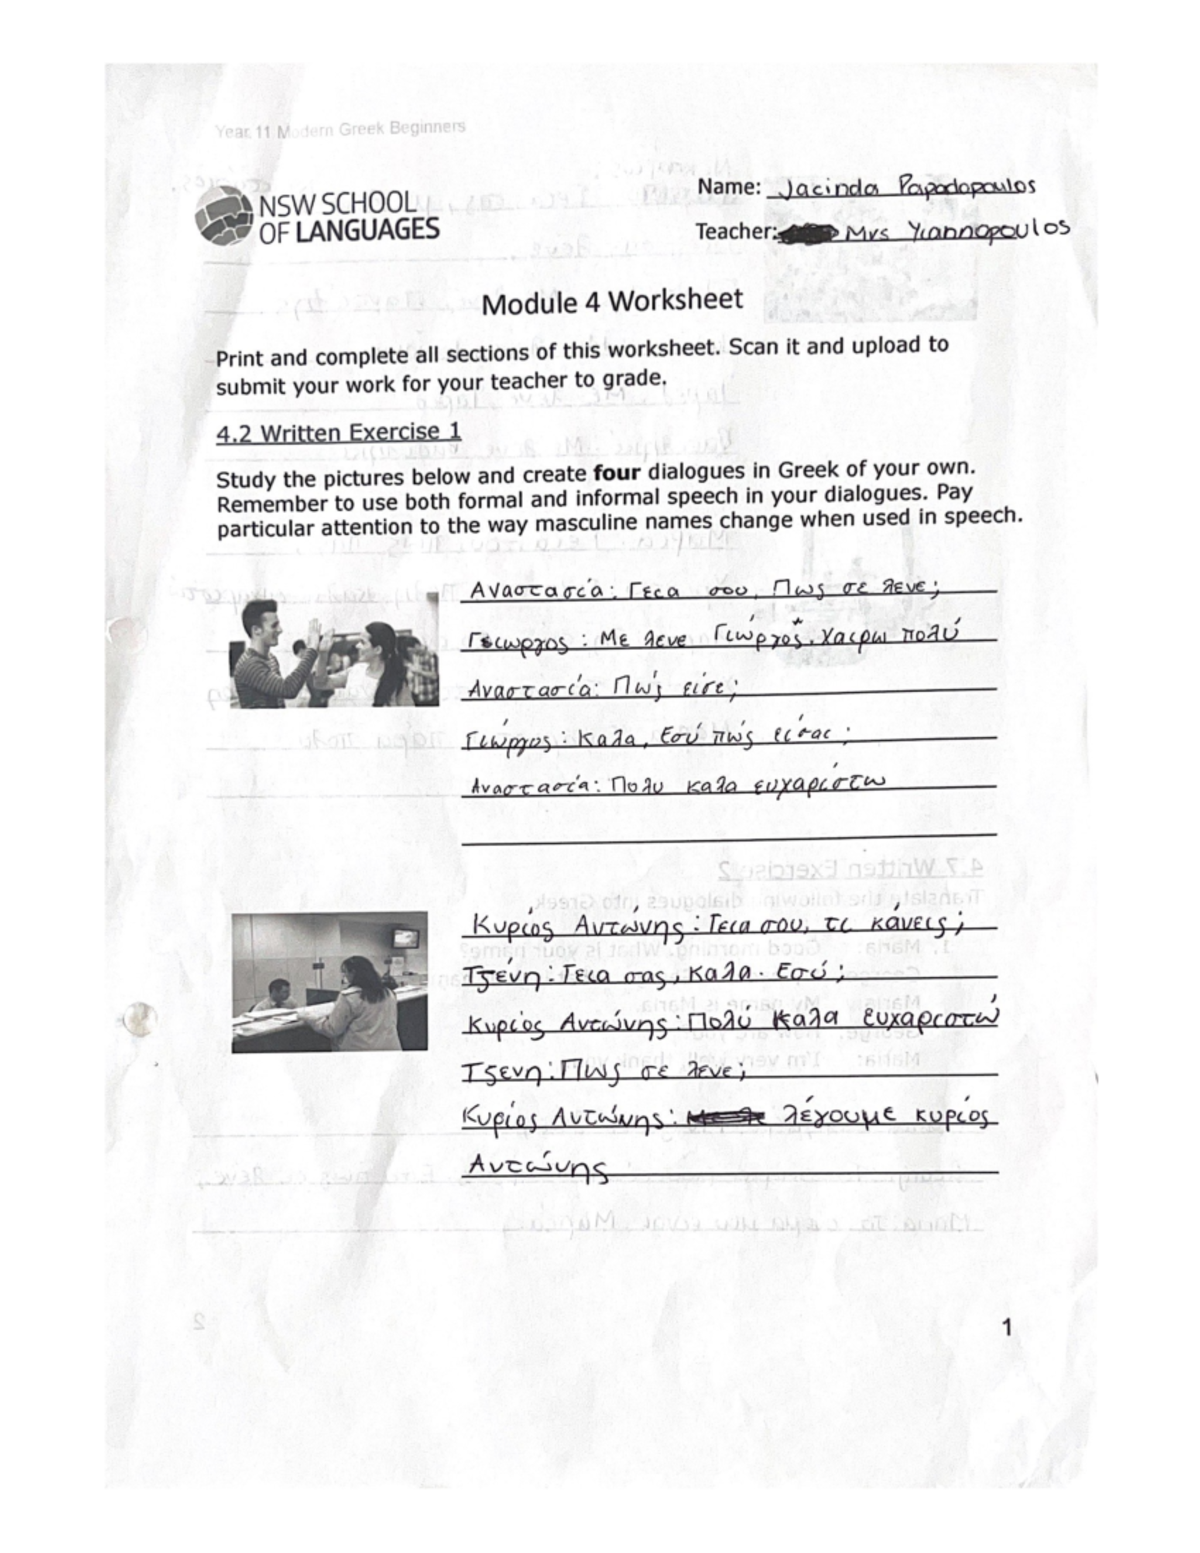 Year 11 Modern Greek Beginners
NSW SCHOOL
OF LANGUAGES
Name: Jacinda Papadopoulos
Teacher: Mrs Yiannopoulos
Module 4 Worksheet
Print and complete all sections of this worksheet. Scan it and upload to
submit your work for your teacher to grade.
4.2 Written Exercise 1
Study the pictures below and create four dialogues in Greek of your own.
Remember to use both formal and informal speech in your dialogues. Pay
particular attention to the way masculine names change when used in speech.
Αναστασία: Γεια σου, Πως σε λενε;
Γιωργος: Με λενε Γιώργος. χαιρω πολύ
Αναστασία: Πώς είσε;
Γιώργος: Καλα, Εσύ πώς είσαι;
Αναστασία: Πολυ καλα ευχαρίστω
Κυρίος Αντώνης: Γεια σου, τι κάνεις;
Τζένη: Γεια σας, Καλα. Εσύ;
Κυρίος Αντώνης: Πολύ Καλα ευχαριστώ
Τζενη: Πως σε λενε;
Κυρίος Αντώνης: λέγουμε κυρίος
Αντώνης
1